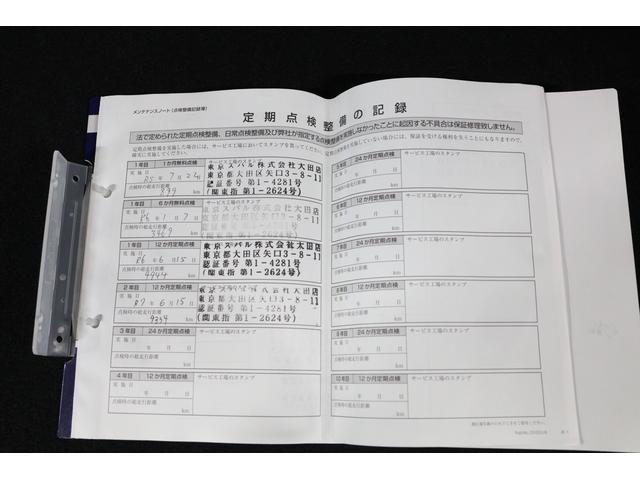 メンテナンスノート(点検整備記録簿)
定期点検整備の記録
法で定められた定期点検整備、日常点検整備及び弊社が指定する点検整備を実施しなかったことに起因する不具合は保証修理致しません。
1年目 1か月無料点検
サービス工場のスタンプ
実施日
R5年7月2日
点検時の総走行距離
899 km
東京スバル株式会社大田店
東京都大田区矢口3-8-11
認証番号第1-4281号
(関東指第1-2624号)
1年目 6か月無料点検
サービス工場のスタンプ
実施日
R6年1月7日
点検時の総走行距離
3969 km
東京スバル株式会社大田店
東京都大田区矢口3-8-11
認証番号第1-4281号
(関東指第1-2624号)
1年目 12か月定期点検
実施日
R6年6月15日
点検時の総走行距離
km
東京スバル株式会社太田店
東京都大田区矢口3-8-11
認証番号第1-4281号
(関東指第1-2624号)
2年目 12か月定期点検
実施日
R7年6月15日
点検時の総走行距離
9354 km
東京都大田区矢口3-8-11
認証番号第1-4281号
(関東指第1-2624号)
3年目 24か月定期点検
サービス工場のスタンプ
実施日
年 月 日
点検時の総走行距離
km
4年目 12か月定期点検
サービス工場のスタンプ
実施日
年 月 日
点検時の総走行距離
km
5年目 24か月定期点検
サービス工場のスタンプ
実施日
年 月 日
点検時の総走行距離
km
12か月定期点検
サービス工場のスタンプ
実施日
年 月 日
点検時の総走行距離
km
7年目 24か月定期点検
サービス工場のスタンプ
実施日
年 月 日
点検時の総走行距離
km
12か月定期点検
サービス工場のスタンプ
実施日
年 月 日
点検時の総走行距離
km
9年目 24か月定期点検
サービス工場のスタンプ
実施日
年 月 日
点検時の総走行距離
km
10年目 12か月定期点検
サービス工場のスタンプ
実施日
年 月 日
点検時の総走行距離
km